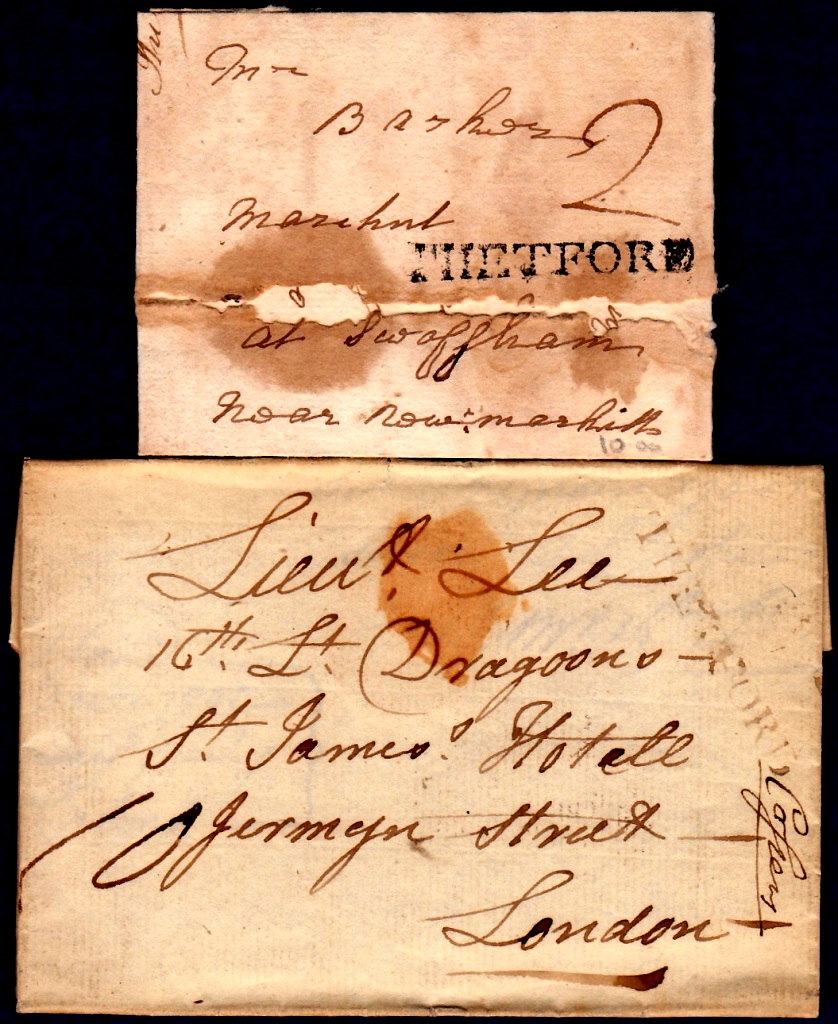 Mr
Barker
2
Marchnt
THETFORD
at Swaffham
near newmarkitt
10 00
Lieut. Lee
16th Lt Dragoons
St James's Hotell
Jermyn Street
London
10
THETFORD